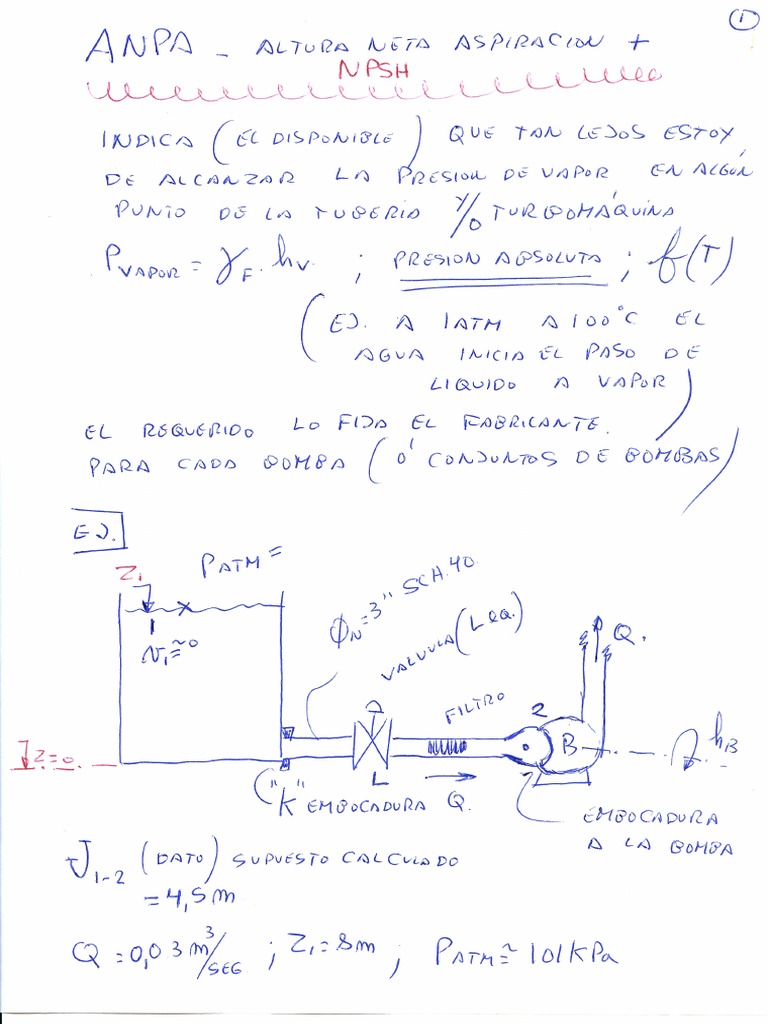 1
ANPA - ALTURA NETA ASPIRACION +
NPSH
INDICA (EL DISPONIBLE) QUE TAN LEJOS ESTOY
DE ALCANZAR LA PRESION DE VAPOR EN ALGÚN
PUNTO DE LA TUBERIA Y/O TURBOMÁQUINA
PVAPOR = γF . hv. ; PRESION ABSOLUTA ; f(T)
(EJ. A 1ATM A 100°C EL
AGUA INICIA EL PASO DE
LIQUIDO A VAPOR)
EL REQUERIDO LO FIJA EL FABRICANTE.
PARA CADA BOMBA (Ó CONJUNTOS DE BOMBAS)
EJ.
Z1
PATM =
ΦN=3" SCH.40.
VALVULA (LEQ.)
1
v1≃0
FILTRO
2
Q.
B
hB
Z=0
L
"K" EMBOCADURA
Q.
EMBOCADURA
A LA BOMBA
J1-2 (DATO) SUPUESTO CALCULADO
= 4,5m
Q = 0,03 m³/SEG ; Z1 = 8m ; PATM ≃ 101KPa